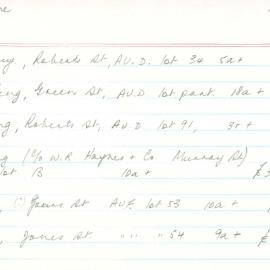 Roberts St, AV.D. lot 34 5a+
Green St, AV.D lot part. 18a+
Roberts St, AV.D lot 91, 3r+
(C/o W.R Haynes & Co Murray St)
lot 13 10a+ £3
St AVF. lot 53 10a+ £
Jones St. " " " 54 9a+ £